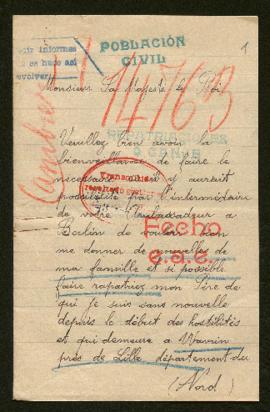 POBLACIÓN
CIVIL
Monsieur Sa Majesté le Roi
14763
Veuillez bien avoir la
bienveillance de faire le
nécessaire y aurait
possibilité par l'intermédiaire
de votre Ambassadeur à
Berlin de vouloir bien
me donner de nouvelles de
ma famille et si possible
faire rapatriez mon Père de
qui je suis sans nouvelle
depuis le début des hostilités
et qui demeure à Wavrin
près de Lille département du
(Nord)
Fecho